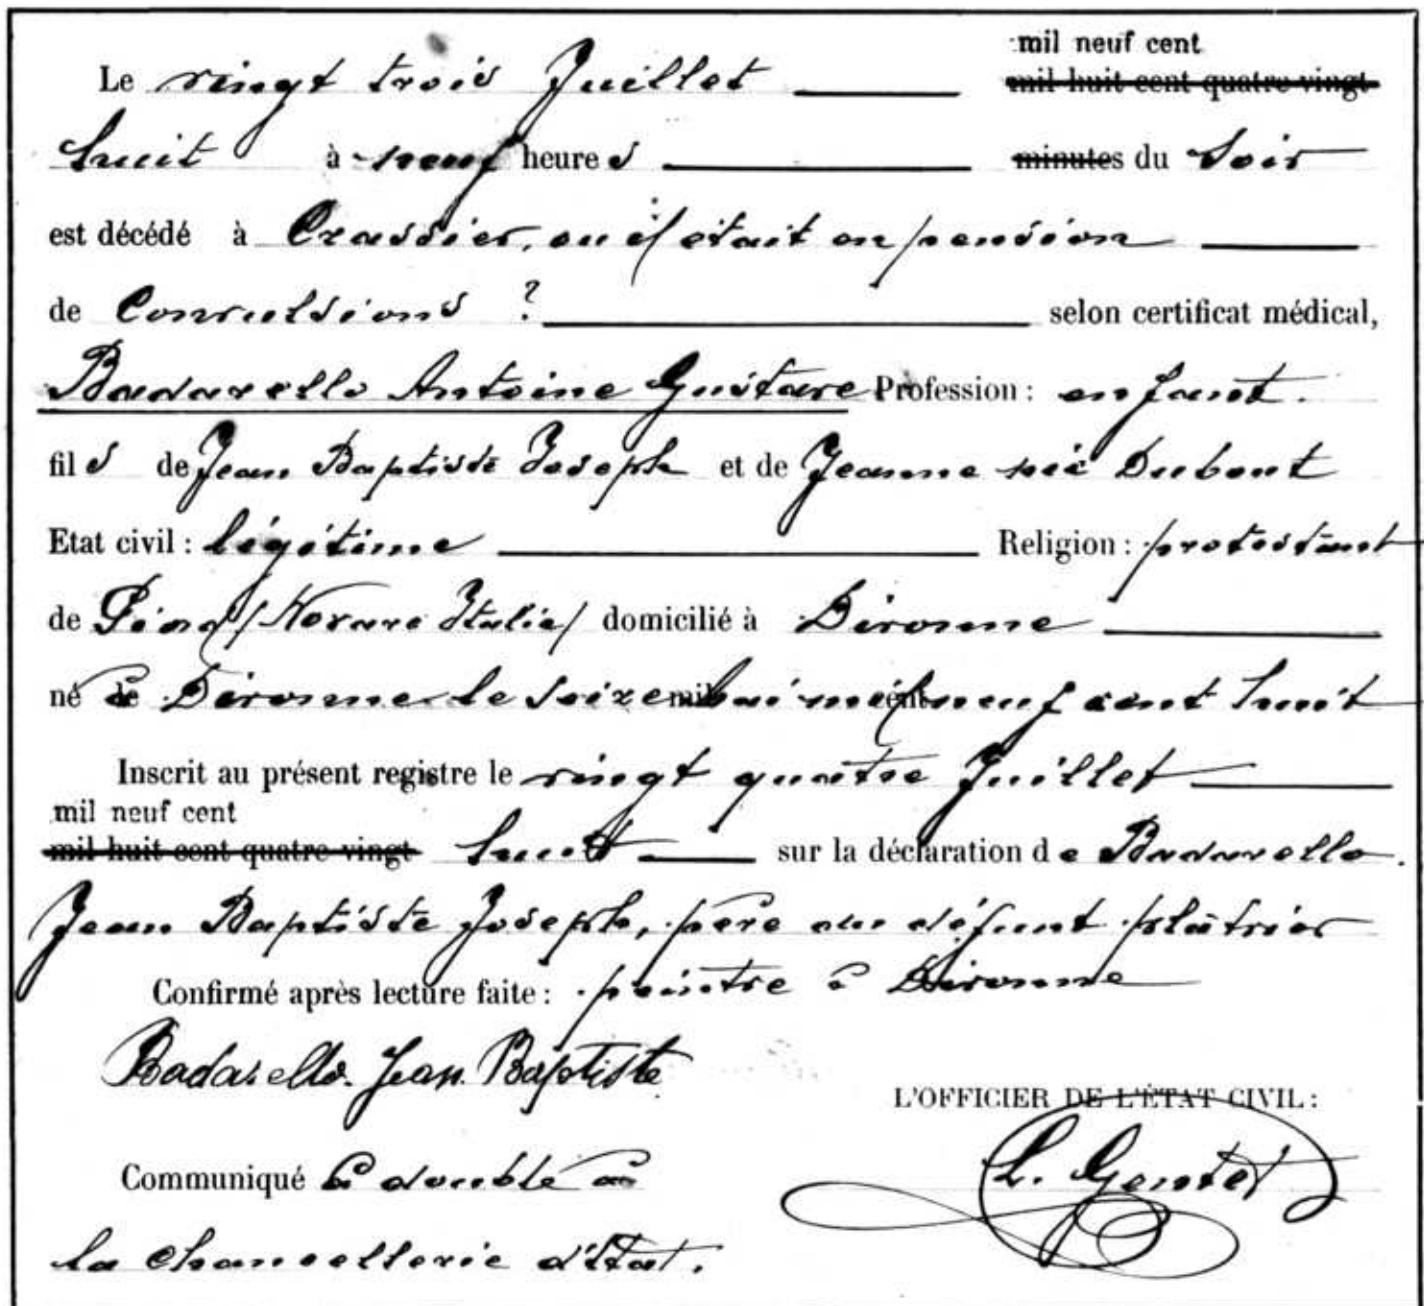 mil neuf cent
Le vingt trois Juillet mil huit cent quatre-vingt
huit à neuf heures minutes du soir
est décédé à Crassier, ou il était en pension
de Convulsions ? selon certificat médical,
Badarello Antoine Gustave Profession : enfant.
fils de Jean Baptiste Joseph et de Jeanne née Dubout
Etat civil : légitime Religion : protestant
de (Novare Italie) domicilié à Divonne
né à Divonne le seize mai mil neuf cent huit
Inscrit au présent registre le vingt quatre Juillet
mil neuf cent
mil huit cent quatre-vingt huit sur la déclaration de Badarello
Jean Baptiste Joseph, père du défunt plâtrier
Confirmé après lecture faite : peintre à Divonne
Badarello Jean Baptiste
L'OFFICIER DE L'ÉTAT CIVIL :
Communiqué à double à
L. Gentet
la Chancellerie d'État.